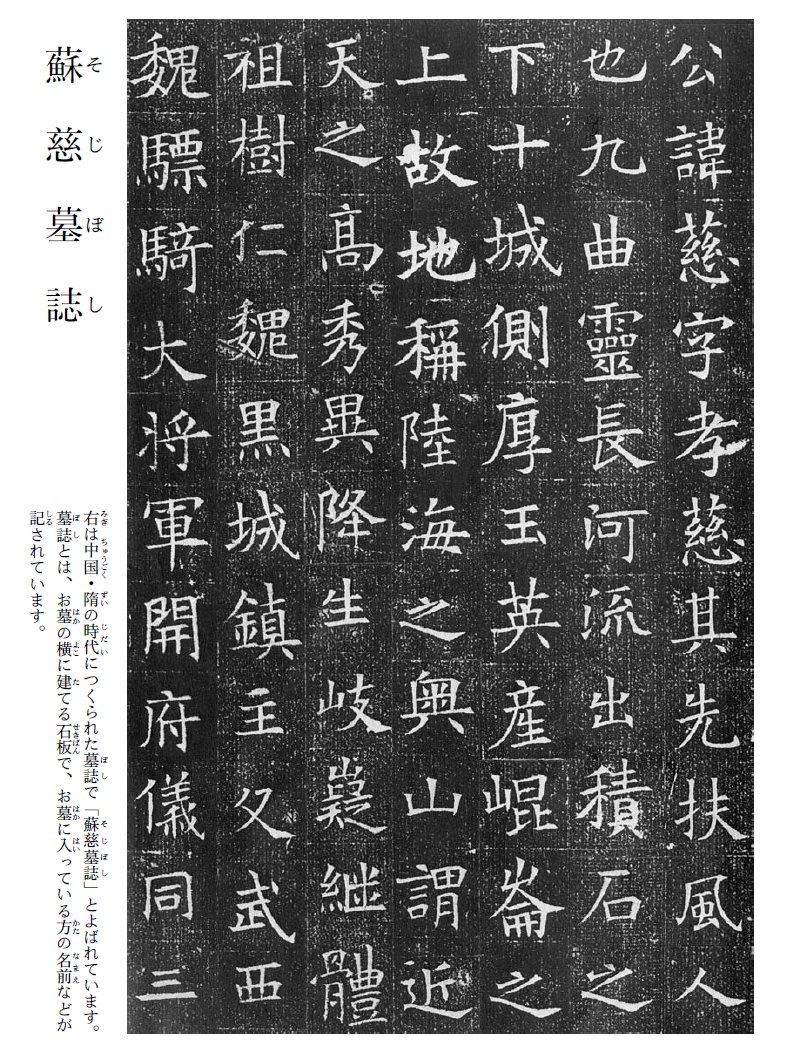 公諱慈字孝慈其先扶風人
也九曲靈長河流出積石之
下十城側厚玉英産崐崙之
上故地稱陸海之奥山謂近
天之髙秀異降生岐嶷継體
祖樹仁魏黒城鎮主父武西
魏驃騎大将軍開府儀同三
蘇慈墓誌
そじぼし
右は中国・隋の時代につくられた墓誌で「蘇慈墓誌」とよばれています。
墓誌とは、お墓の横に建てる石板で、お墓に入っている方の名前などが
記されています。